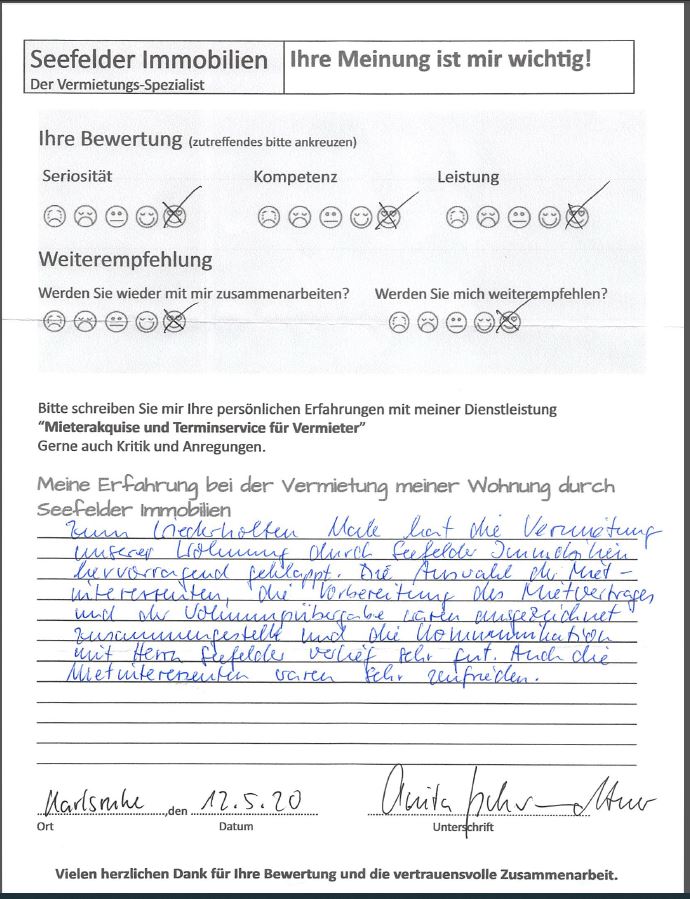 Seefelder Immobilien
Der Vermietungs-Spezialist
Ihre Meinung ist mir wichtig!
Ihre Bewertung (zutreffendes bitte ankreuzen)
Seriosität Kompetenz Leistung
Weiterempfehlung
Werden Sie wieder mit mir zusammenarbeiten? Werden Sie mich weiterempfehlen?
Bitte schreiben Sie mir Ihre persönlichen Erfahrungen mit meiner Dienstleistung
“Mieterakquise und Terminservice für Vermieter”
Gerne auch Kritik und Anregungen.
Meine Erfahrung bei der Vermietung meiner Wohnung durch
Seefelder Immobilien
Zum wiederholten Male hat die Vermietung
unserer Wohnung durch Seefelder Immobilien
hervorragend geklappt. Die Auswahl der Miet-
interessenten, die Vorbereitung des Mietvertrages
und der Wohnungsübergabe waren ausgezeichnet
zusammengestellt und die Kommunikation
mit Herrn Seefelder verlief sehr gut. Auch die
Mietinteressenten waren sehr zufrieden.
Karlsruhe ,den 12.5.20 Anita
Ort Datum Unterschrift
Vielen herzlichen Dank für Ihre Bewertung und die vertrauensvolle Zusammenarbeit.